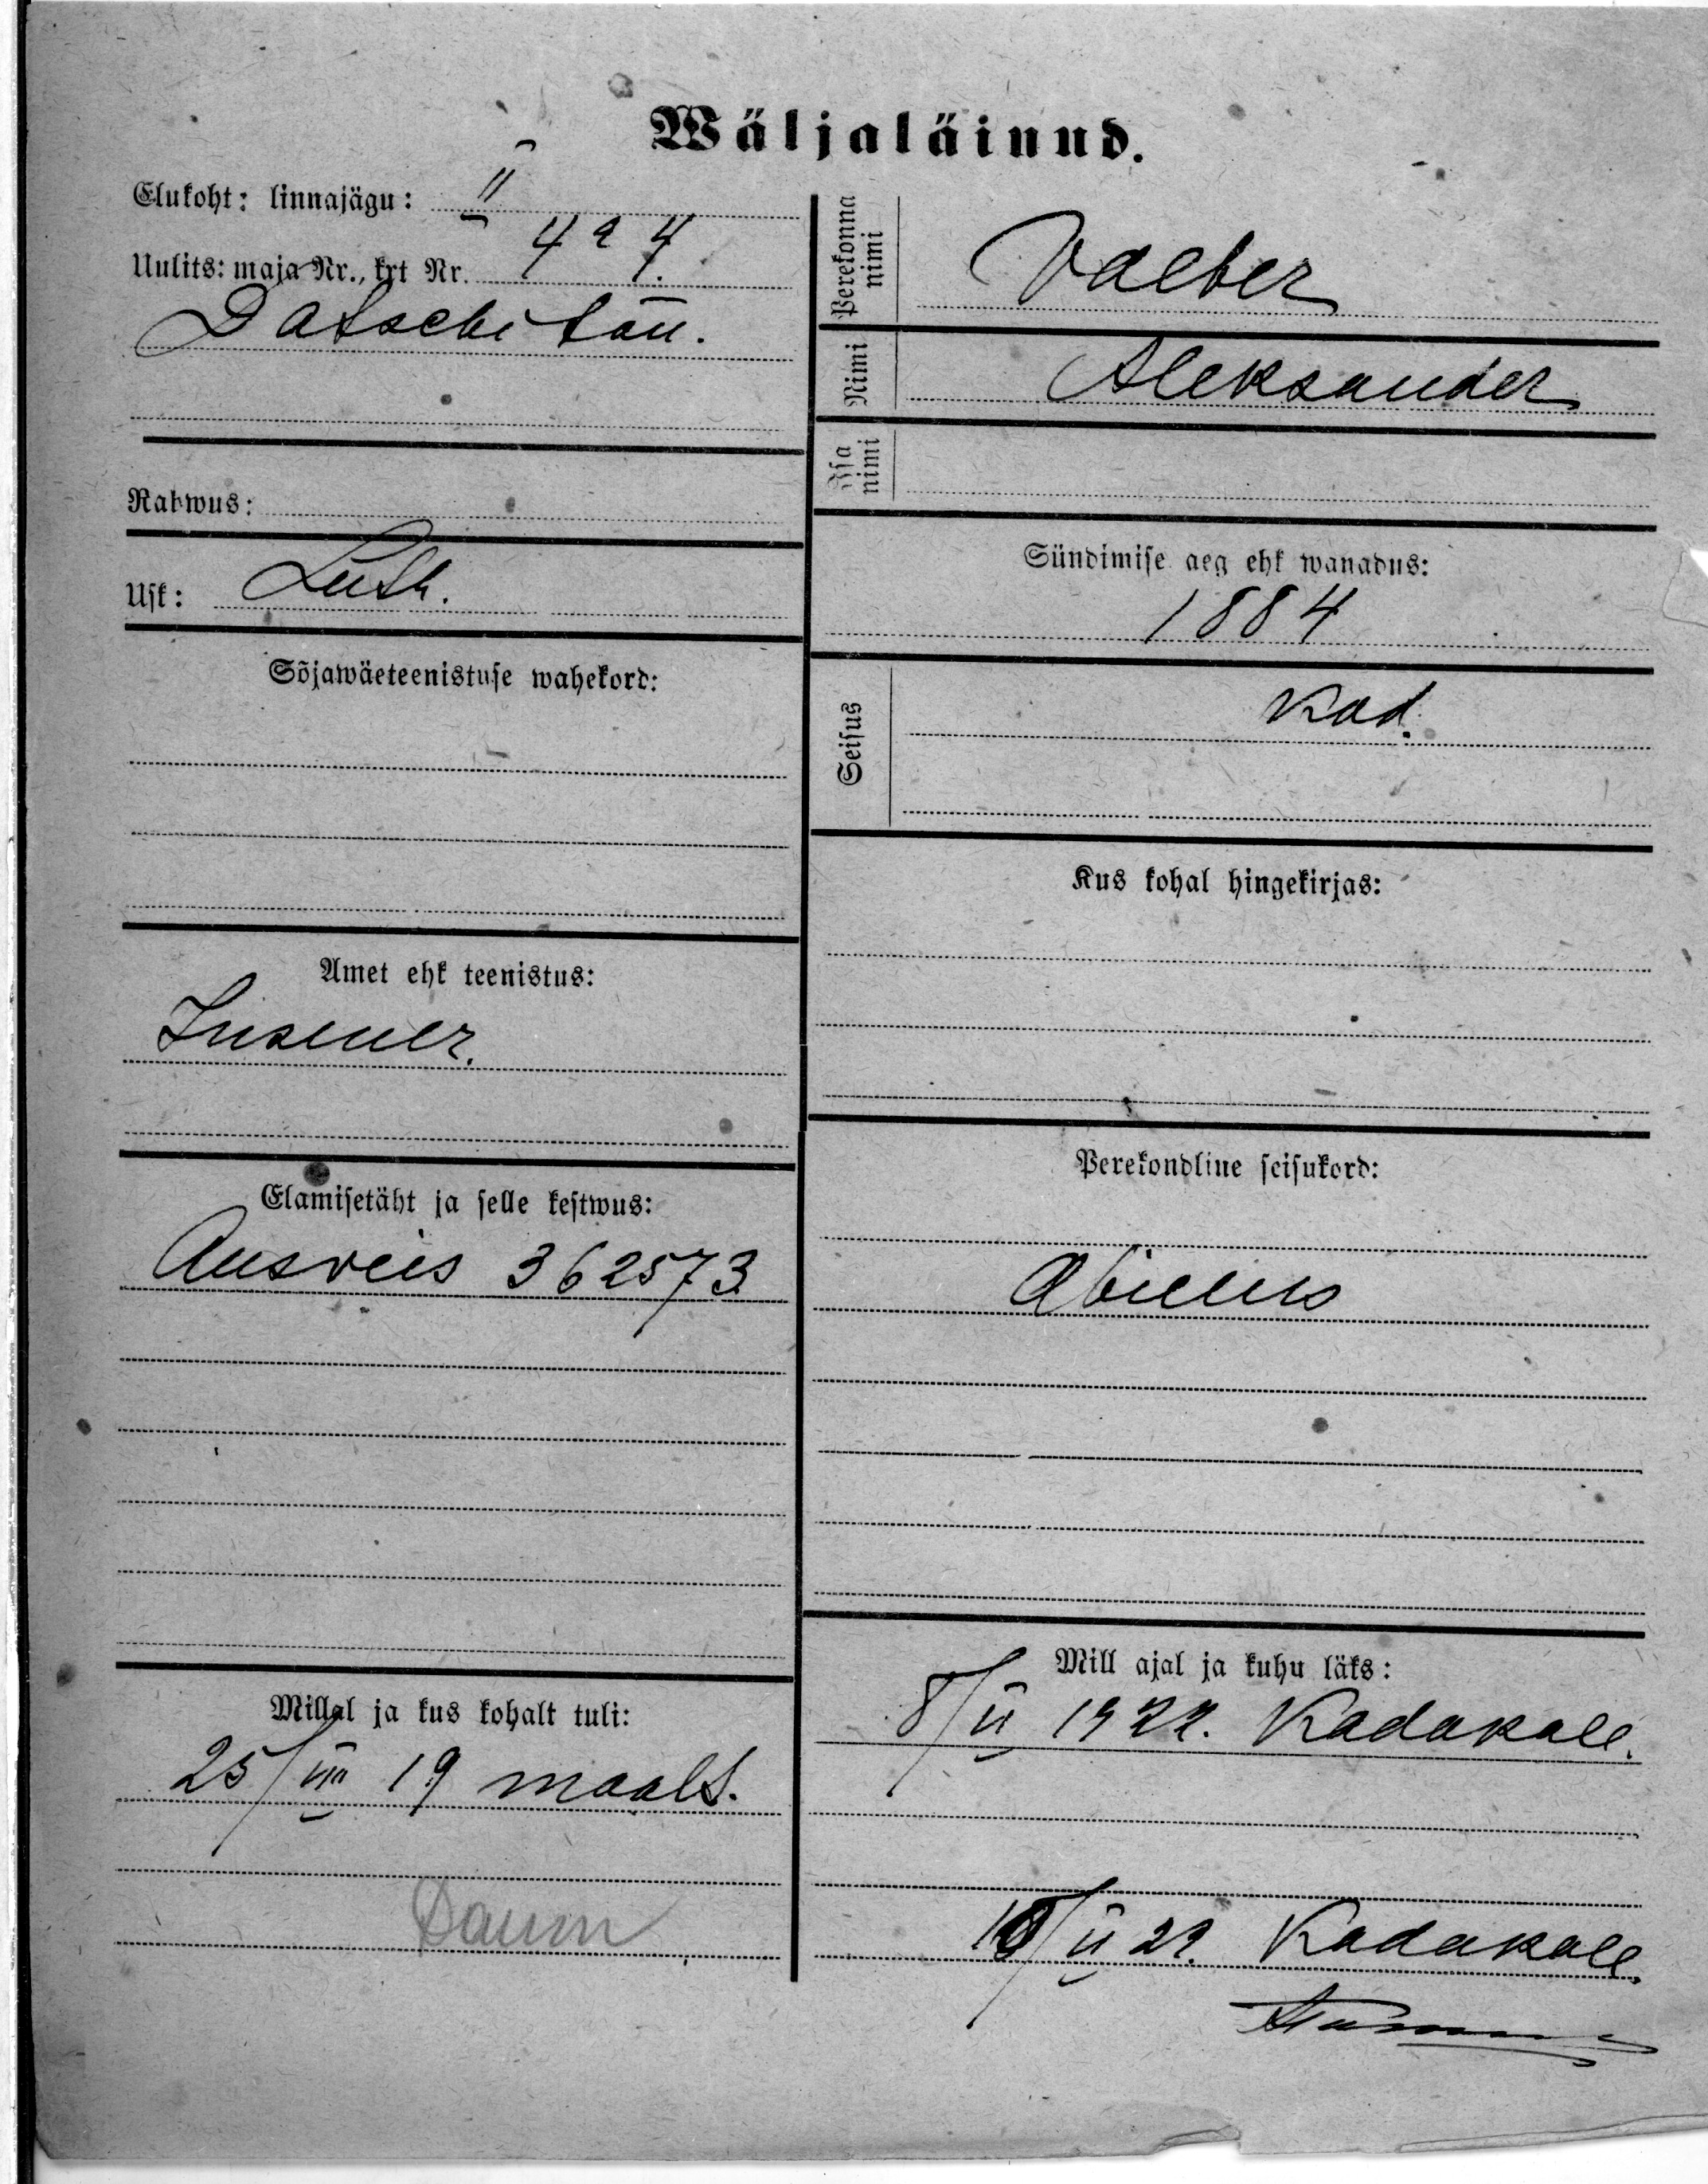 Wäljaläinud.
Elukoht: linnajägu: II
Uulits: maja Nr., krt Nr. 4ª 4.
Datschi tän.
Rahwus:
Usk: Luth.
Sõjawäeteenistuse wahekord:
Amet ehk teenistus:
Insener.
Elamisetäht ja selle kestwus:
Ausveis 362573
Millal ja kus kohalt tuli:
25/VIII 19 maalt.
Daum
Perekonna nimi Vaeber
Nimi Aleksander
Isa nimi
Sündimise aeg ehk wanadus:
1884
Seisus kod.
Kus kohal hingekirjas:
Perekondline seisukord:
Abielus
Mill ajal ja kuhu läks:
8/II 1922. Kadakale.
/II 22. Kadakale.